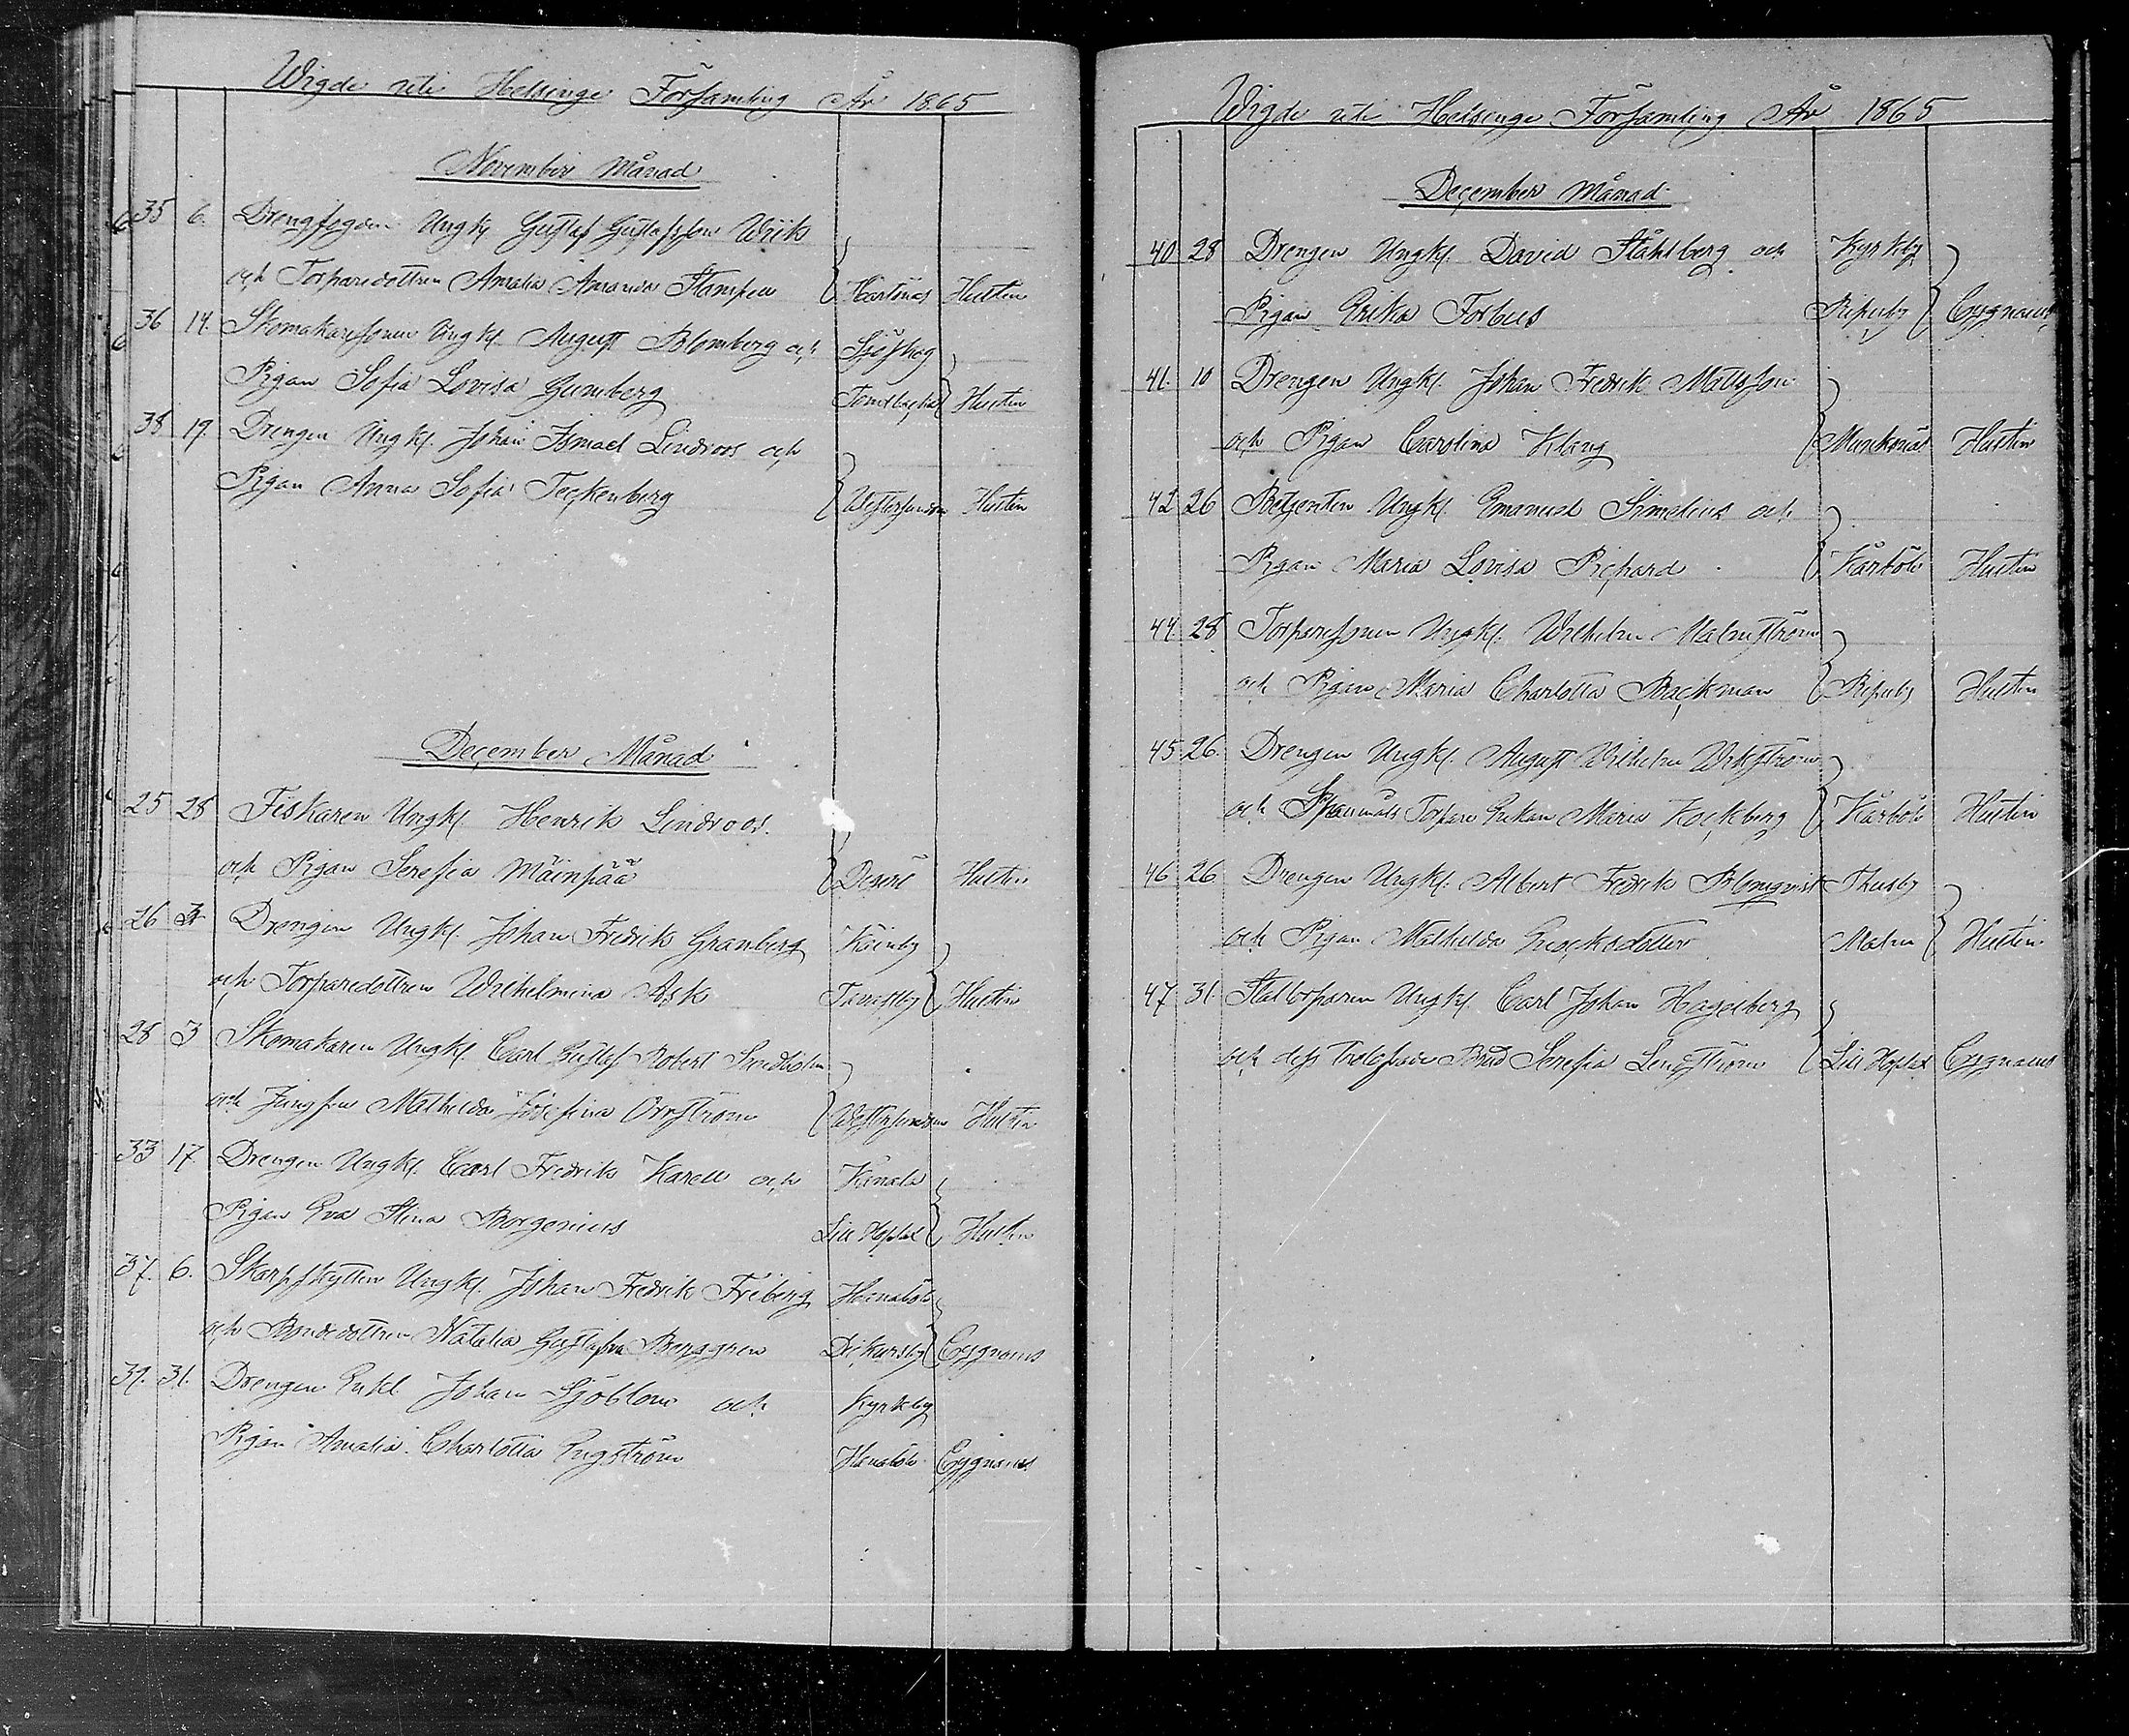 Wigde uti Helsinge Församling År 1865
November Månad
35 6. Drengfogden Ungk. Gustaf Gustafsson Wiik
och Torparedottren Amalia Amanda Stampen Hertonäs Hultin
36 14. Skomakaresonen Ungkl. August Blomberg och Sjöskog
Pigan Sofia Lovisa Gumberg Hultin
38 19. Drengen Ungkl. Johan Ismael Lindroos och
Pigan Anna Sofia Teckenberg Westersundom Hultin
December Månad
25 28 Fiskaren Ungkl. Henrik Lindroos.
och Pigan Serafia Mäinpää Degerö Hultin
26 3 Drengen Ungkl. Johan Fredrik Granberg
och Torparedottren Wilhelmina Ask Hultin
28 3 Skomakaren Ungkl. Carl Gustaf Robert
och Jungfrun Mathilda Josefina Orrström Westersundom Hultin
33 17 Drengen Ungkl. Carl Fredrik Karell och Kånala
Pigan Eva Stina Borgenius Lill Hoplax Hultin
37. 6. Skarpskytten Ungkl. Johan Fredrik Friberg Hanaböle
och Bondedottren Natalia Gustafva Berggren Dickursby Cygnaeus
39. 31. Drengen Enkl. Johan Sjöblom och Kyrkby
Pigan Amalia Charlotta Engström Hanaböle Cygnaeus
Wigde uti Helsinge Församling År 1865
December Månad
40 28 Drengen Ungkl. David Ståhlberg och Kyrkby
Pigan Erika Forbus Ripuby Cygnaeus
41. 10 Drengen Ungkl. Johan Fredrik Mattsson
och Pigan Carolina Klang Munksnäs Hultin
42 26 Betjenten Ungkl. Emanuel Simelius och
Pigan Maria Lovisa Richard Kårböle Hultin
44. 28 Torparesonen Ungkl. Wilhelm Malmström
och Pigan Maria Charlotta Backman Ripuby Hultin
45 26. Drengen Ungkl. August Wilhelm Wikström
och Torpare Enkan Maria Kockberg Kårböle Hultin
46 26 Drengen Ungkl. Albert Fredrik Blomqvist Thusby
och Pigan Mathilda Ericksdotter Malm Hultin
47 31. Ungkl. Carl Johan Hagelberg
och dess trolofvade Brud Serafia Lengström Lill Hoplax Cygnaeus